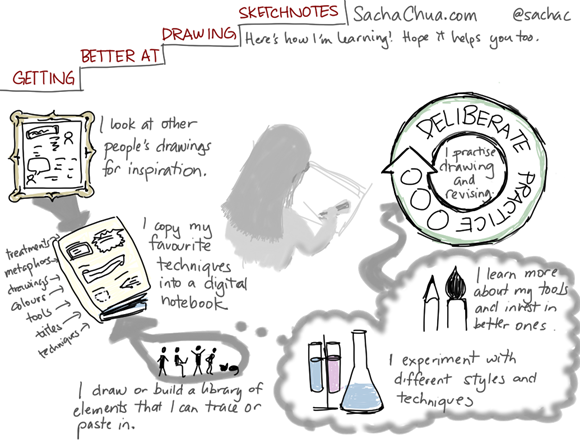 GETTING
BETTER AT
DRAWING
SKETCHNOTES
SachaChua.com
@sachac
Here's how I'm learning! Hope it helps you too.
I look at other
people's drawings
for inspiration.
I copy my
favourite
techniques
into a digital
notebook
treatments
metaphors
drawings
colours
tools
titles
techniques
I draw or build a library of
elements that I can trace or
paste in.
I experiment with
different styles and
techniques
I learn more
about my tools
and invest in
better ones.
DELIBERATE
PRACTICE
I practise
drawing
and
revising.